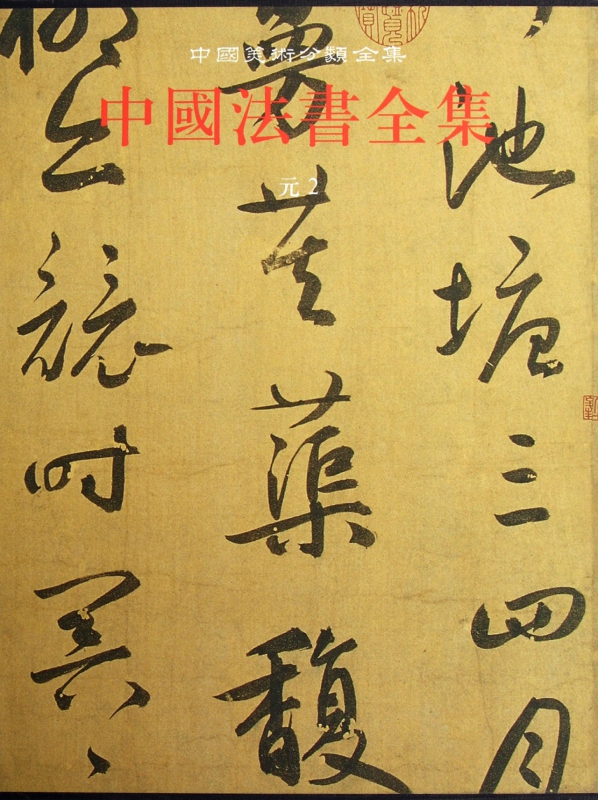 中國美術分類全集
中國法書全集
元2
池塘三四月
蔓芙蕖馥
上競时